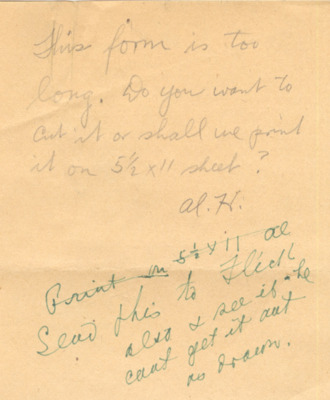 This form is too
long. Do you want to
cut it or shall we print
it on 5½ x 11 sheet?
Al. H.
Print on 5½ x 11 al
Send this to Flick
also & see if he
cant get it out
as drawn.